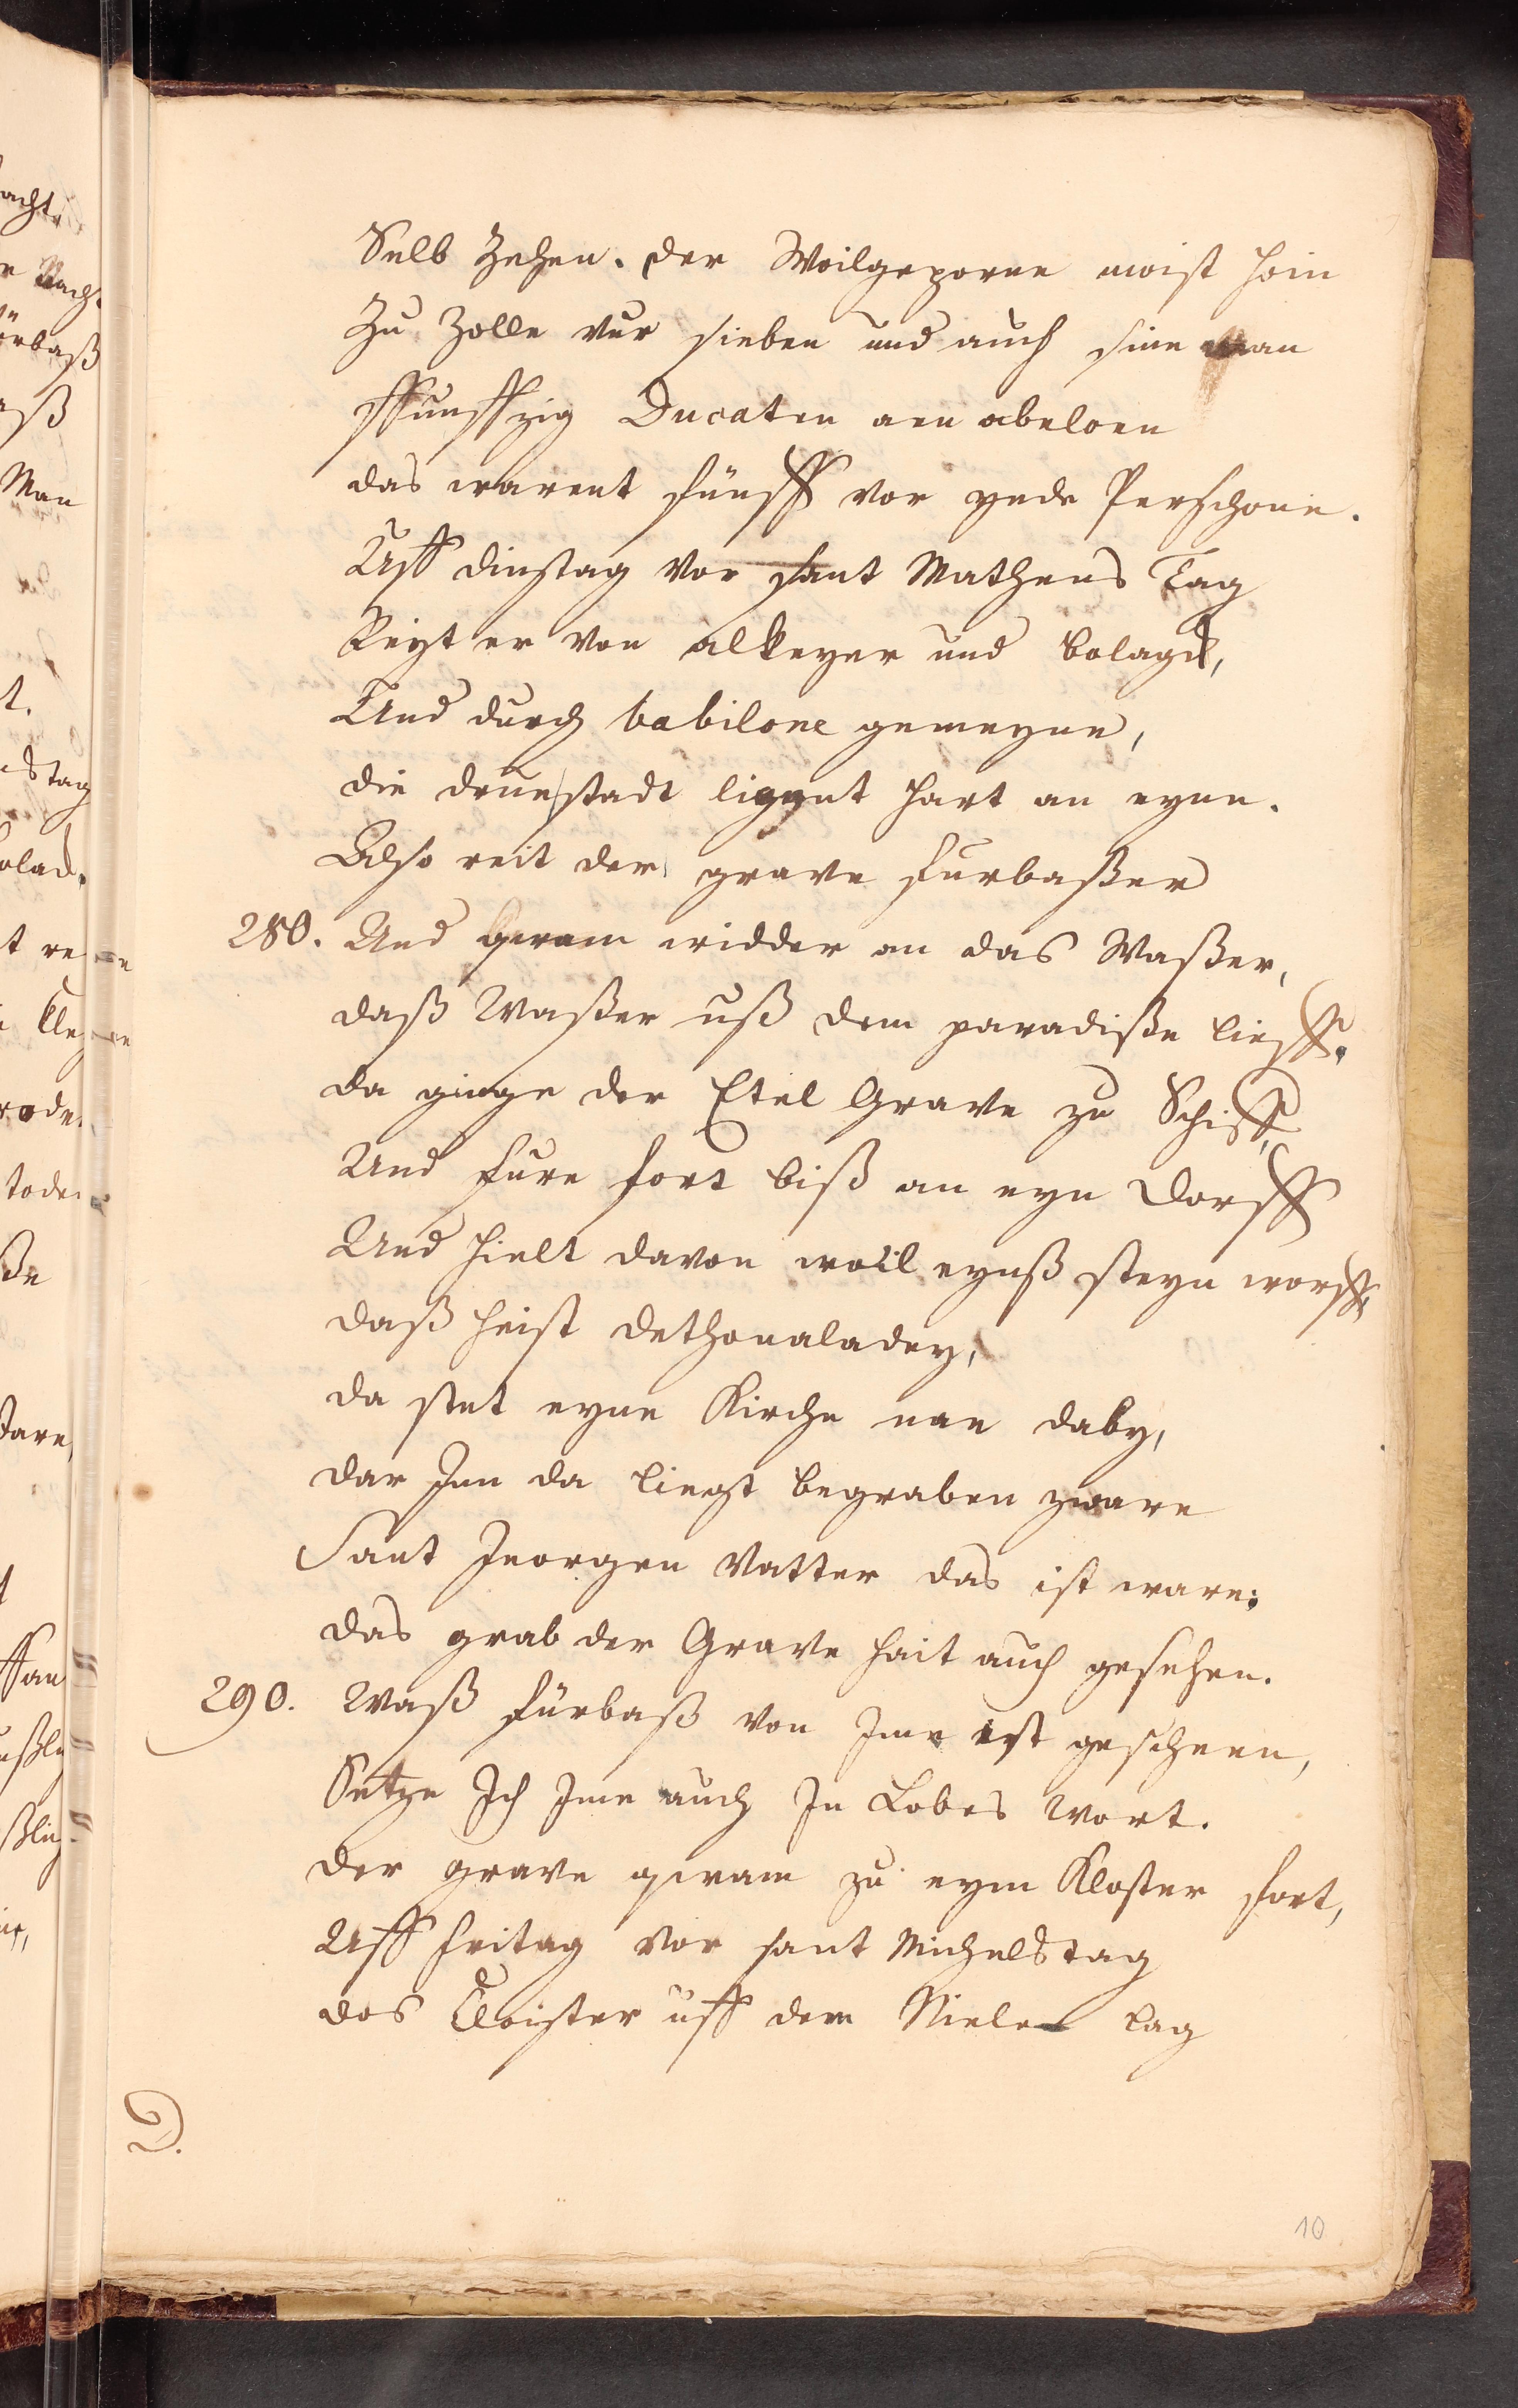 Selb Zehen. der Woilgeporne moist hein
Zu Zolle vur sieben und auch sine man
ffunffzig Ducaten aen abeloen
das warent fünff vor yede Perschone.
Uff dinstag vor sant Matheus Tag
Reyt er von alkeyer und bolagk,
Und durch babilone gemeyne,
die drue stadt ligget hart an eyne.
Also reit der grave furbaßer
280. Und qwam widder an das Waßer,
daß Waßer uß dem paradiße lieff.
da ginge der Etel Grave zu Schiff,
Und fure fort biß an eyn dorff
Und hielt davon woil eynß steyn worff,
daß heist dethonaladey,
da stet eyne Kirche nae daby,
dar Inn da liegt begraben zware
Sant Jeorgen Vatter das ist ware:
das grab der Grave hait auch gesehen.
290. Waß fürbaß von Jme ist gescheen,
Setze Ich Jme auch In Lobes Wort.
der grave qwam zu eym Kloster fort,
Uff fritag vor sant Michelstag
das Cloister uff dem Niele lag
D.
10